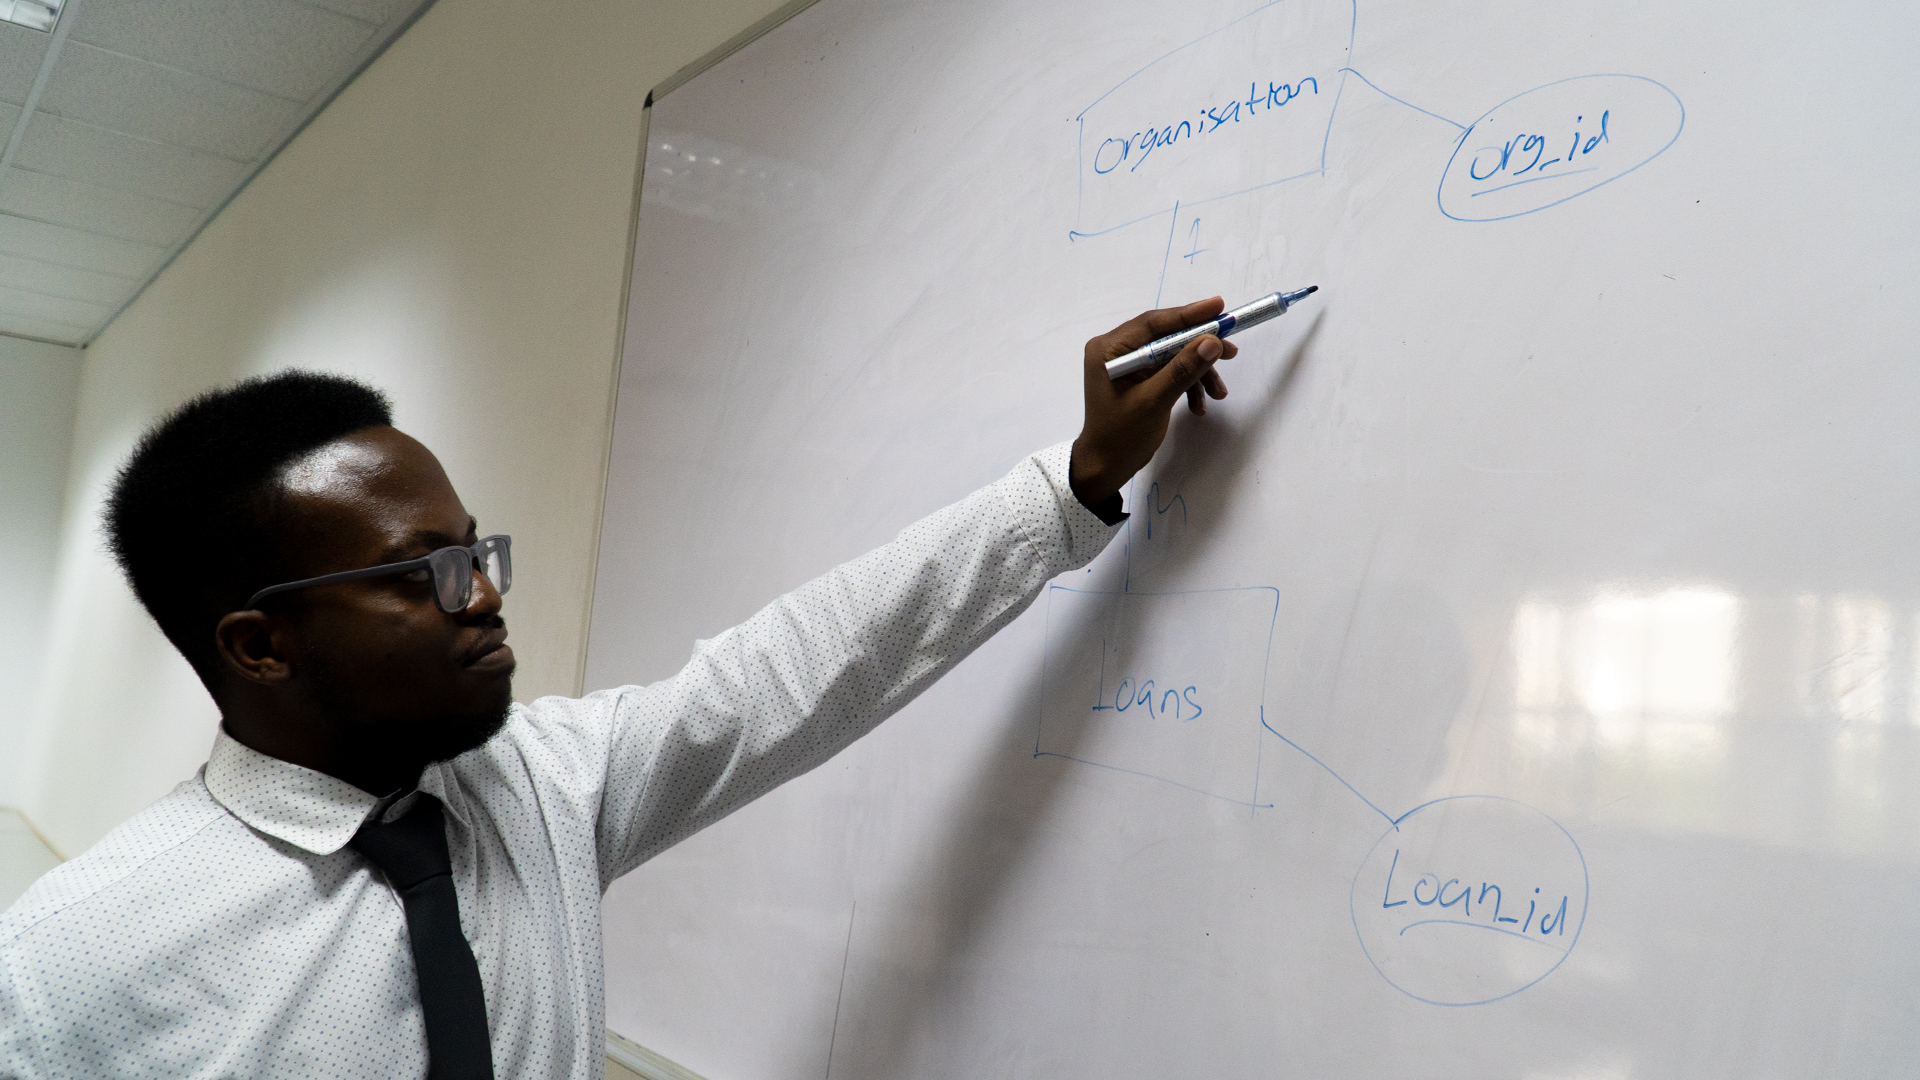 Organisation
org_id
1
M
Loans
Loan_id